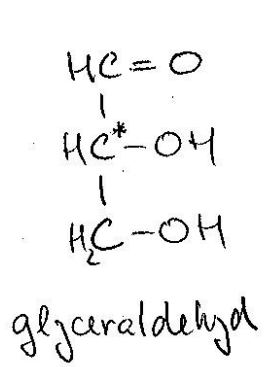 HC=O
HC*-OH
H₂C-OH
glyceraldehyd